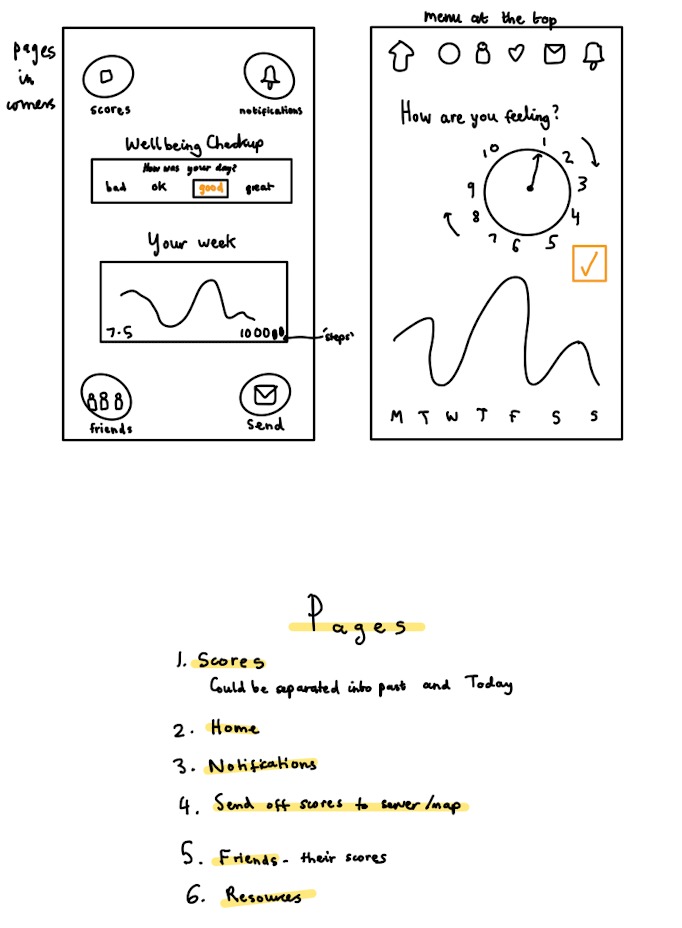 pages
in
corners
scores
notifications
Wellbeing Checkup
How was your day?
bad ok good great
Your week
7.5 10000
'steps'
friends
Send
menu at the top
How are you feeling?
1
2
3
4
5
6
7
8
9
10
M T W T F S S
Pages
1. Scores
Could be separated into past and Today
2. Home
3. Notifications
4. Send off scores to server/map
5. Friends - their scores
6. Resources